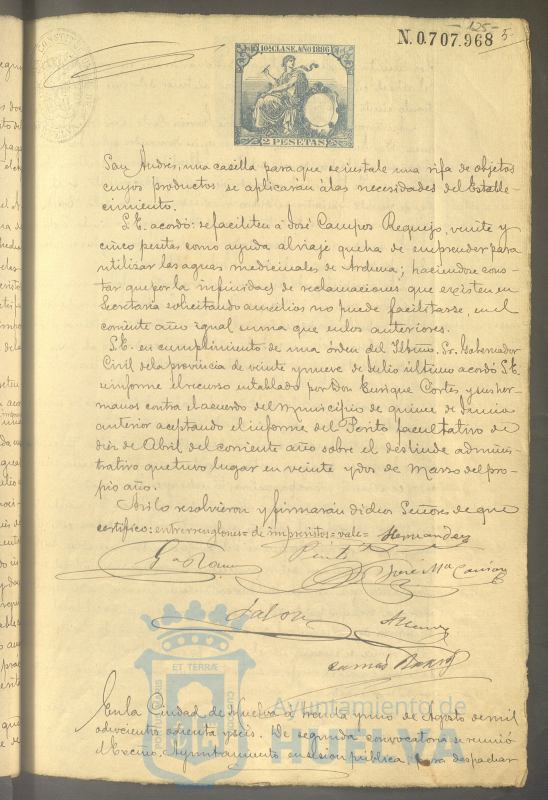 -125-
N. 0.707.968 5
10ª CLASE. AÑO 1886
2 PESETAS
San Andrés, una casilla para que se instale una rifa de objetos
cuyos productos se aplicarán á las necesidades del Estable-
cimiento.
S.E. acordó: se faciliten á José Campos Requejo, veinte y
cinco pesetas como ayuda al viaje que ha de emprender para
utilizar las aguas medicinales de Archena; haciendose cons-
tar que por la infinidad de reclamaciones que existen en
Secretaria solicitando auxilios no puede facilitarse, en el
corriente año igual suma que en los anteriores.
S.E. en cumplimiento de una órden del Iltmo. Sr. Gobernador
Civil de la provincia de veinte y nueve de Julio último acordó S.E.
informe el recurso entablado por Don Enrique Cortés, y sus her-
manos contra el acuerdo del Municipio de quince de Junio
anterior aceptando el informe del Perito facultativo de
diez de Abril del corriente año sobre el deslinde adminis-
trativo que tuvo lugar en veinte y dos de Marzo del pro-
pio año.
Asi lo resolvieron y firmarán dichos Señores de que
certifico: entrerrenglones = de imprevistos = vale = Hernandez
José Mª
En la Ciudad de Huelva á treinta y uno de Agosto de mil
ochocientos ochenta y seis. De segunda convocatoria se reunió
el Excmo. Ayuntamiento en sesion pública, para despachar
ET TERRÆ
Ayuntamiento de
HUELVA